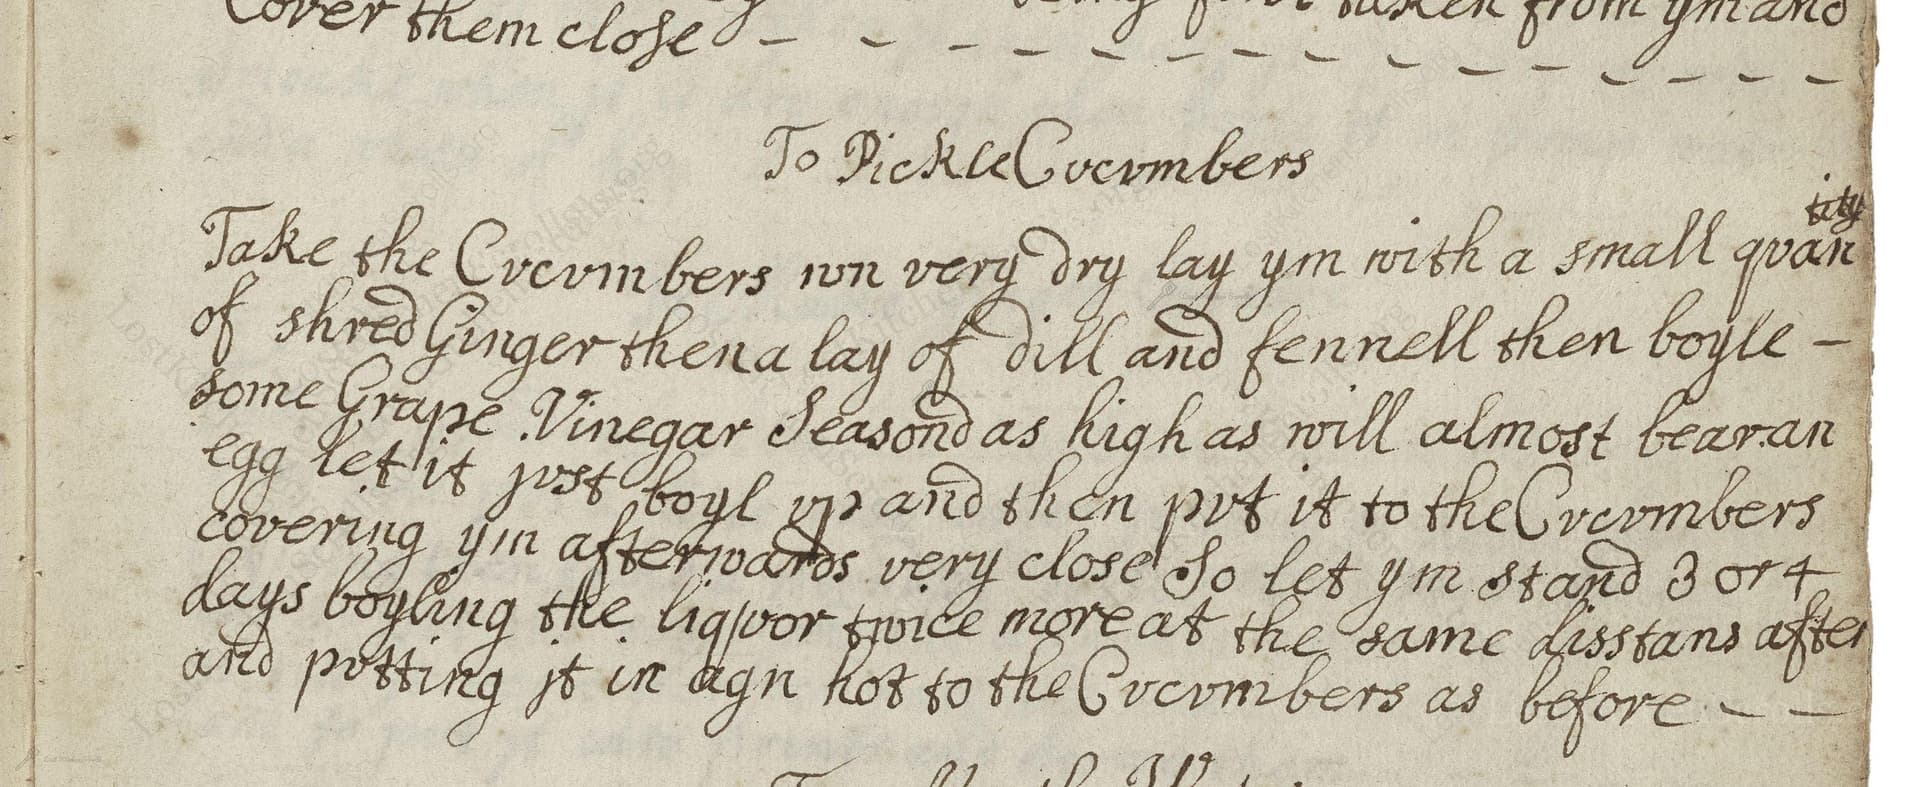 taken from ym and
Cover them close
To Pickle Cvcvmbers
Take the Cvcvmbers wn very dry lay ym with a small qvan
tity
of shred Ginger then a lay of dill and fennell then boyle -
some Grape Vinegar Seasond as high as will almost bear an
egg let it jvst boyl vp and then pvt it to the Cvcvmbers
covering ym afterwards very close So let ym stand 3 or 4
days boyling the liqvor twice more at the same disstans after
and pvtting jt in agn hot to the Cvcvmbers as before - -